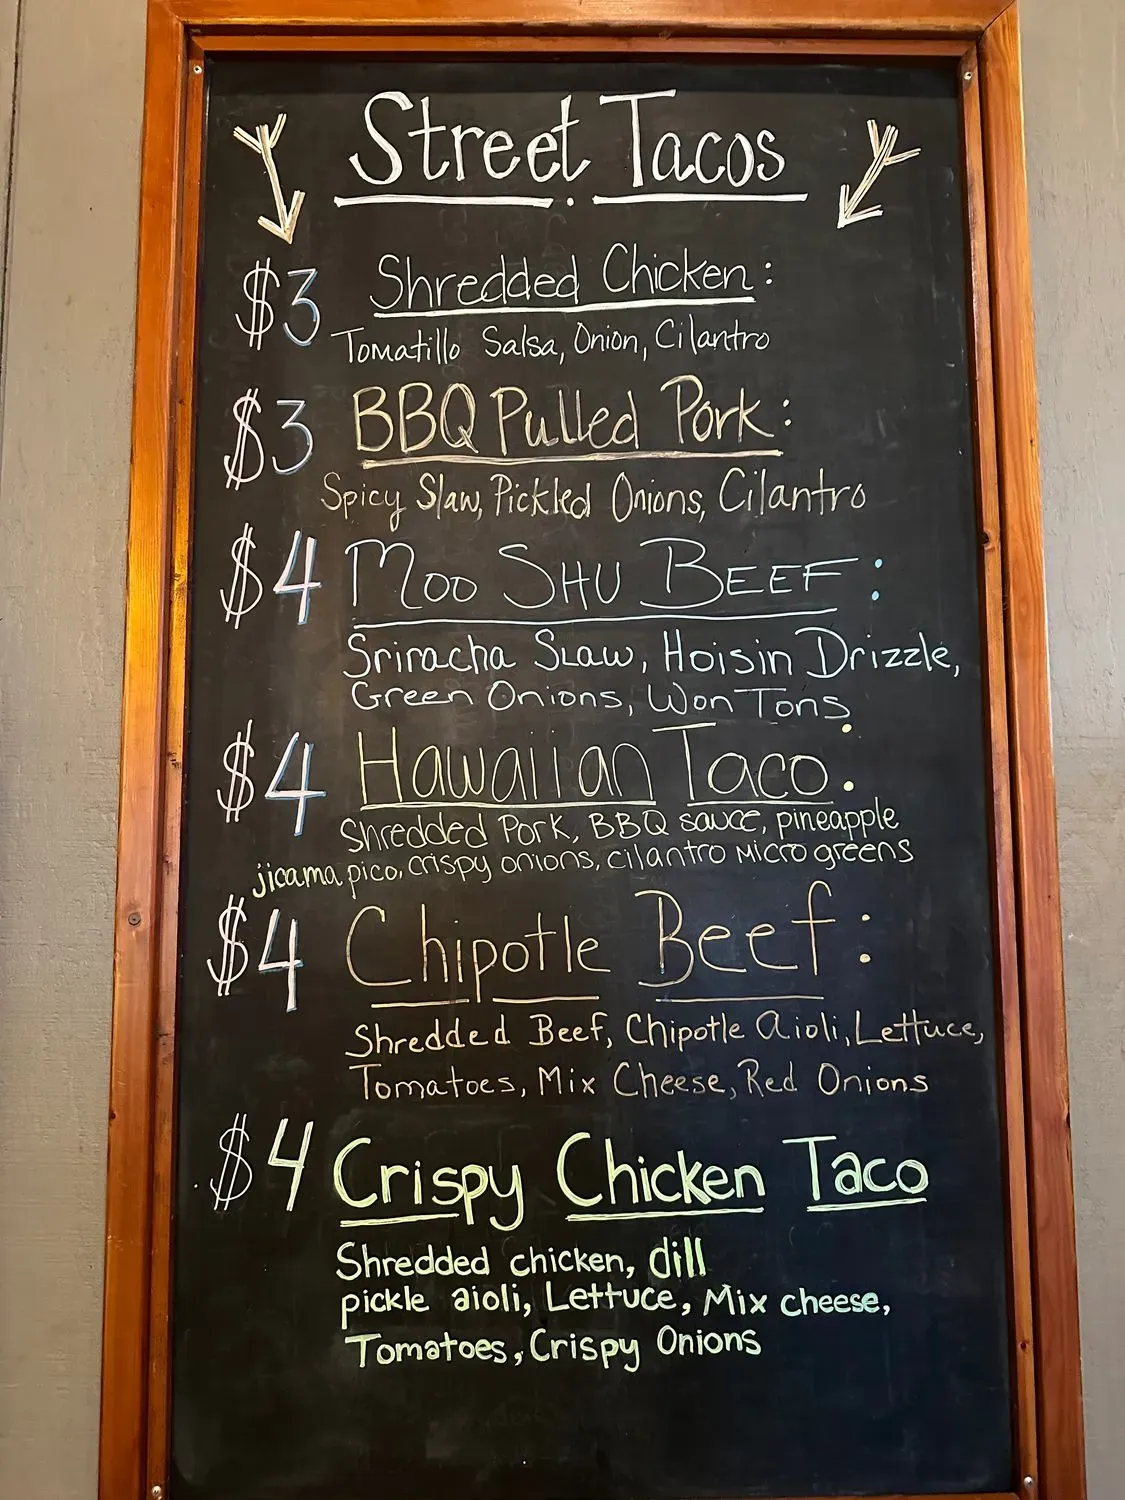 Street Tacos
$3 Shredded Chicken:
Tomatillo Salsa, Onion, Cilantro
$3 BBQ Pulled Pork:
Spicy Slaw, Pickled Onions, Cilantro
$4 Moo SHU BEEF:
Sriracha SLaw, Hoisin Drizzle,
Green Onions, Won Tons
$4 Hawaiian Taco:
Shredded Pork, BBQ sauce, pineapple
jicama pico, crispy onions, cilantro Micro greens
$4 Chipotle Beef:
Shredded Beef, Chipotle aioli, Lettuce,
Tomatoes, Mix Cheese, Red Onions
$4 Crispy Chicken Taco
Shredded chicken, dill
pickle aioli, Lettuce, Mix cheese,
Tomatoes, Crispy Onions